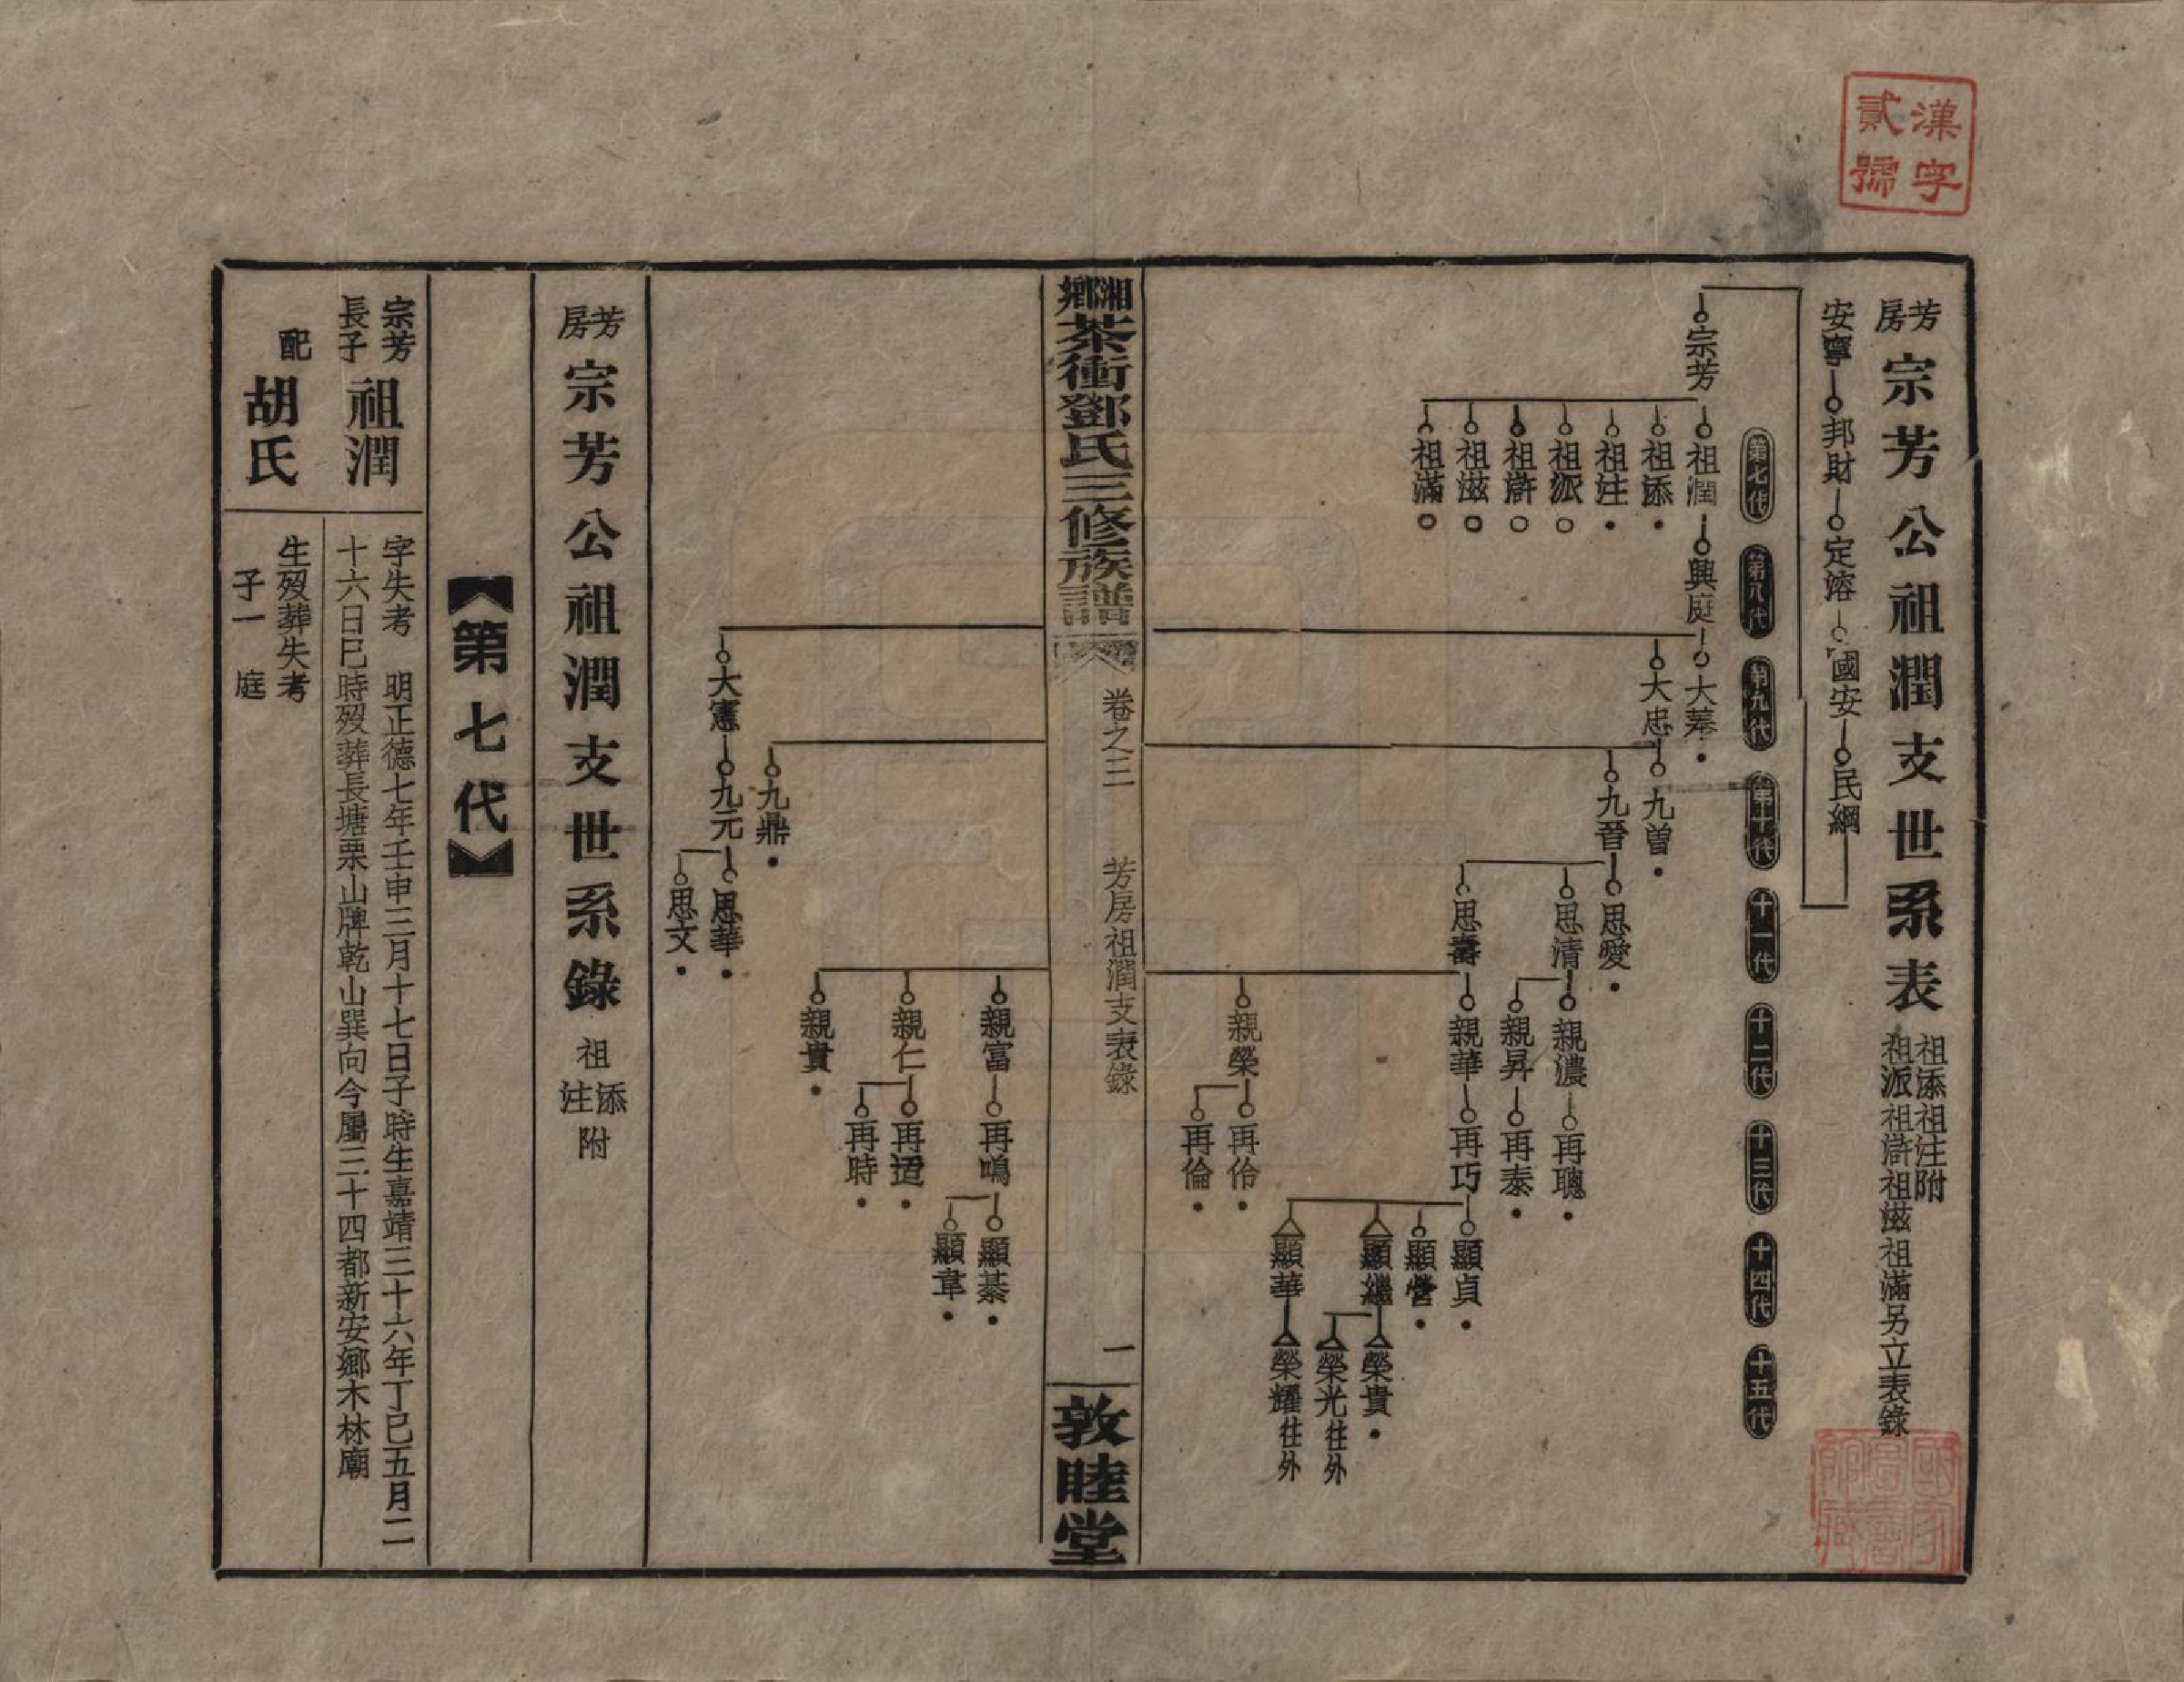 漢字
貳號
芳房 宗芳公祖潤支世系表 祖添祖注附 祖派祖滸祖滋祖滿另立表錄
安寧 邦財 定溶 國安 民綱
第七代 第八代 第九代 第十代 十一代 十二代 十三代 十四代 十五代
宗芳 祖潤 興庭 大䒟
祖添 大忠 九曾
祖注 九晉 思愛
祖派 思清 親濃 再聰
祖滸 親昇 再泰
祖滋 思壽 親華 再巧 顯貞
祖滿 顯營
顯繼 榮貴
榮光往外
顯華 榮耀往外
親榮 再伶
再倫
湘鄉茶衝鄧氏三修族譜 卷之三 芳房祖潤支表錄 一 敦睦堂
親富 再鳴 顯綦
顯韋
親仁 再道
再時
親貴
九鼎
大憲 九元 思華
思文
芳房 宗芳公祖潤支世系錄 祖添注附
第七代
宗芳長子 祖潤 字失考 明正德七年壬申三月十七日子時生嘉靖三十六年丁巳五月二
十六日巳時歿葬長塘栗山牌乾山巽向今屬三十四都新安鄉木林廟
配 胡氏 生歿葬失考
子一 庭